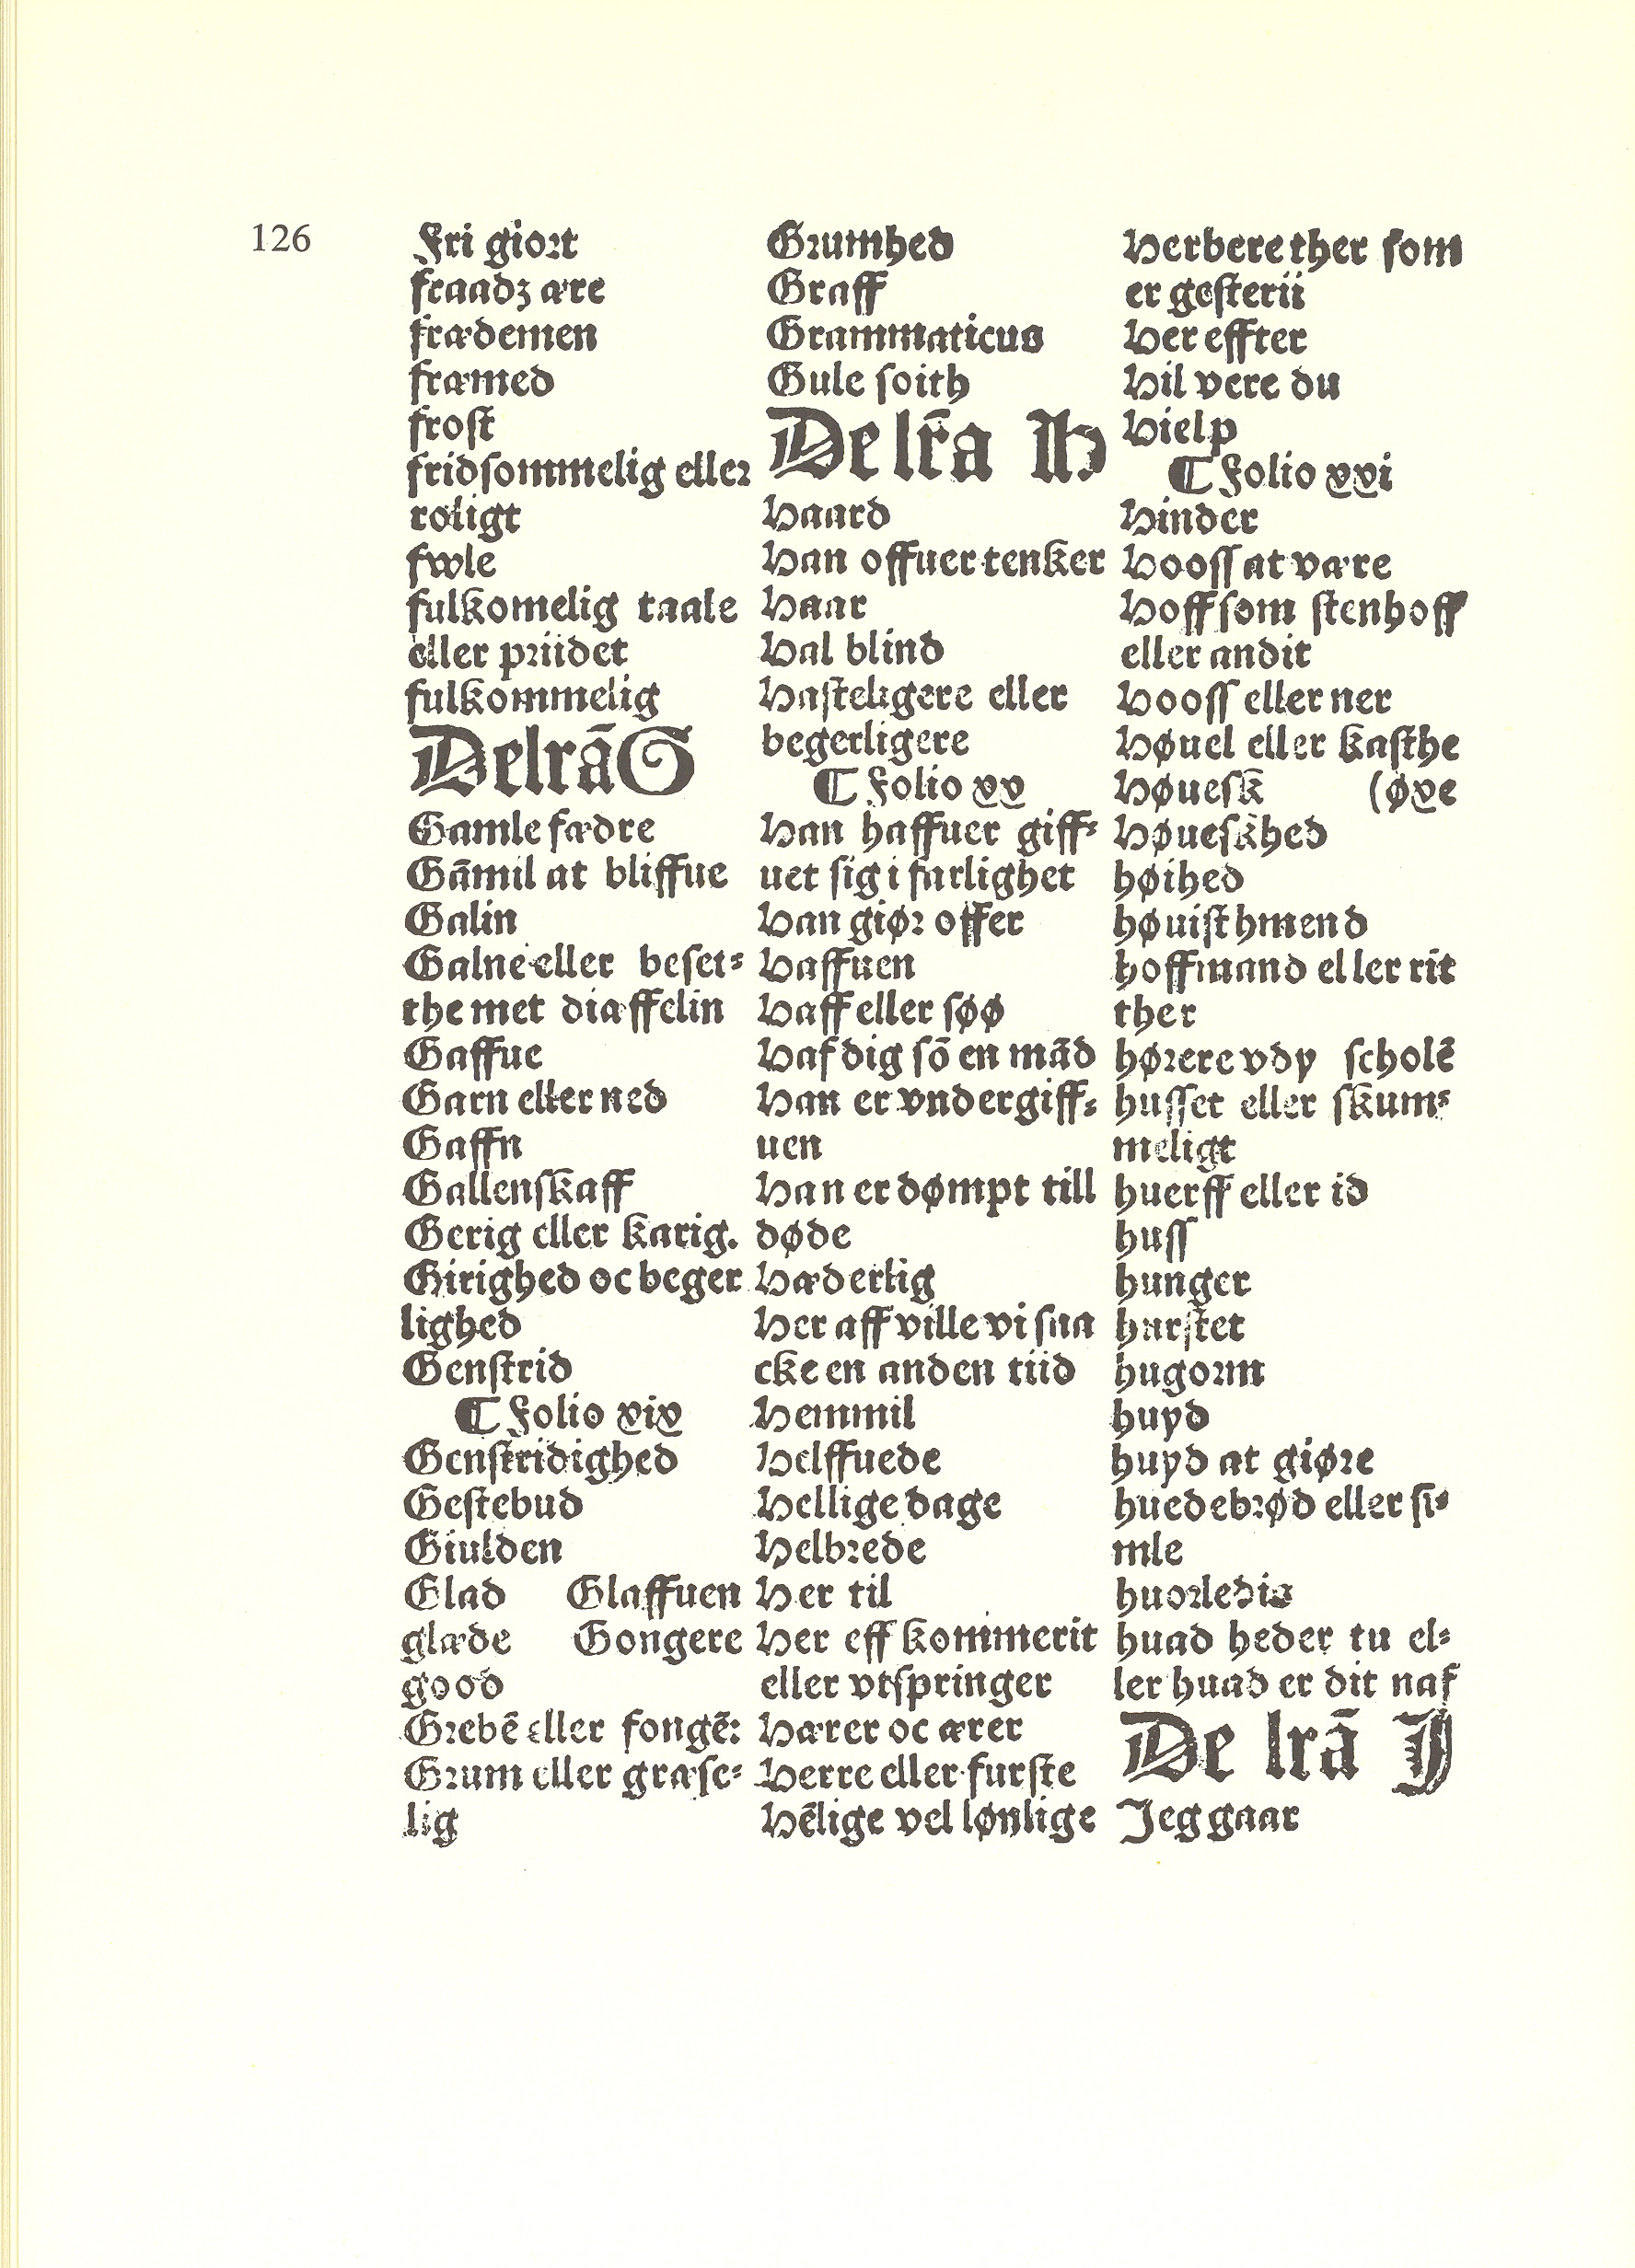 126
Fri giort
fraadz ære
frædemen
fræmed
frost
fridsommelig eller
roligt
fwle
fulkomelig taale
eller priidet
fulkommelig
De lrā G
Gamle fædre
Gāmil at bliffue
Galin
Galne eller beset⸗
the met diæffelin
Gaffue
Garn eller ned
Gaffn
Gallenskaff
Gerig eller karig.
Girighed oc beger
lighed
Genstrid
⸿ Folio xix
Genstridighed
Gestebud
Giulden
Glad Glaffuen
glæde Gongere
good
Grebē eller fongē:
Grum eller græse⸗
lig
Grumhed
Graff
Grammaticus
Gule soith
De lr̄a H
Haard
Han offuer tenker
Haar
Hal blind
Hasteligere eller
begerligere
⸿ Folio xx
Han haffuer giff⸗
uet sig i farlighet
Han giør offer
Haffuen
Haff eller søø
Haf dig sō en mād
Han er vndergiff⸗
uen
Han er dømpt till
døde
Hæderlig
Her aff ville vi sna
cke en anden tiid
Hemmil
Helffuede
Hellige dage
Helbrede
Her til
Her eff kommerit
eller vtspringer
Hærer oc ærer
Herre eller furste
Hēlige vel lønlige
Herbere ther som
er gesterii
Her effter
Hil vere du
Hielp
⸿ Folio xxi
Hinder
Hooss at være
Hoff som stenhoff
eller andit
Hooss eller ner
Høuel eller kasthe
Høuesk (øxe
Høueskhed
høihed
høuisthmend
hoffmand eller rit
ther
hørere vdy scholē
husset eller skum⸗
meligt
huerff eller id
huss
hunger
harstet
hugorm
huyd
huyd at giøre
huedebrød eller si⸗
mle
huorledis
huad heder tu el⸗
ler huad er dit naf
De lrā J
Jeg gaar